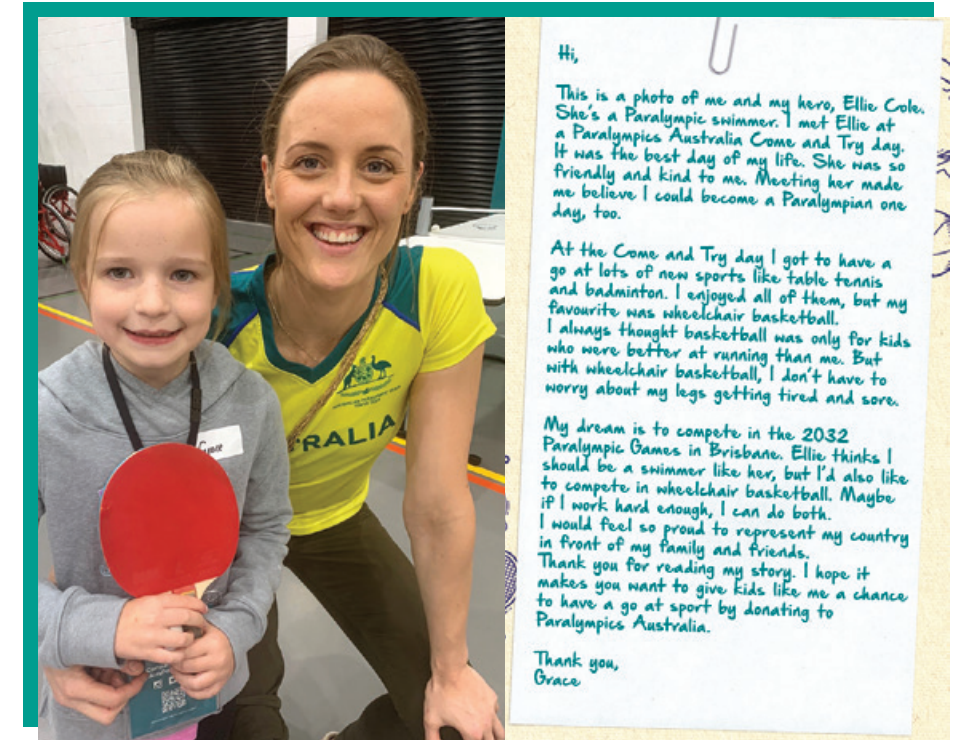 Grace
RALIA
Hi,
This is a photo of me and my hero, Ellie Cole.
She's a Paralympic swimmer. I met Ellie at
a Paralympics Australia Come and Try day.
It was the best day of my life. She was so
friendly and kind to me. Meeting her made
me believe I could become a Paralympian one
day, too.
At the Come and Try day I got to have a
go at lots of new sports like table tennis
and badminton. I enjoyed all of them, but my
favourite was wheelchair basketball.
I always thought basketball was only for kids
who were better at running than me. But
with wheelchair basketball, I don't have to
worry about my legs getting tired and sore.
My dream is to compete in the 2032
Paralympic Games in Brisbane. Ellie thinks I
should be a swimmer like her, but I'd also like
to compete in wheelchair basketball. Maybe
if I work hard enough, I can do both.
I would feel so proud to represent my country
in front of my family and friends.
Thank you for reading my story. I hope it
makes you want to give kids like me a chance
to have a go at sport by donating to
Paralympics Australia.
Thank you,
Grace